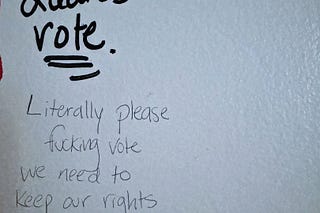 vote.
Literally please
fucking vote
we need to
keep our rights